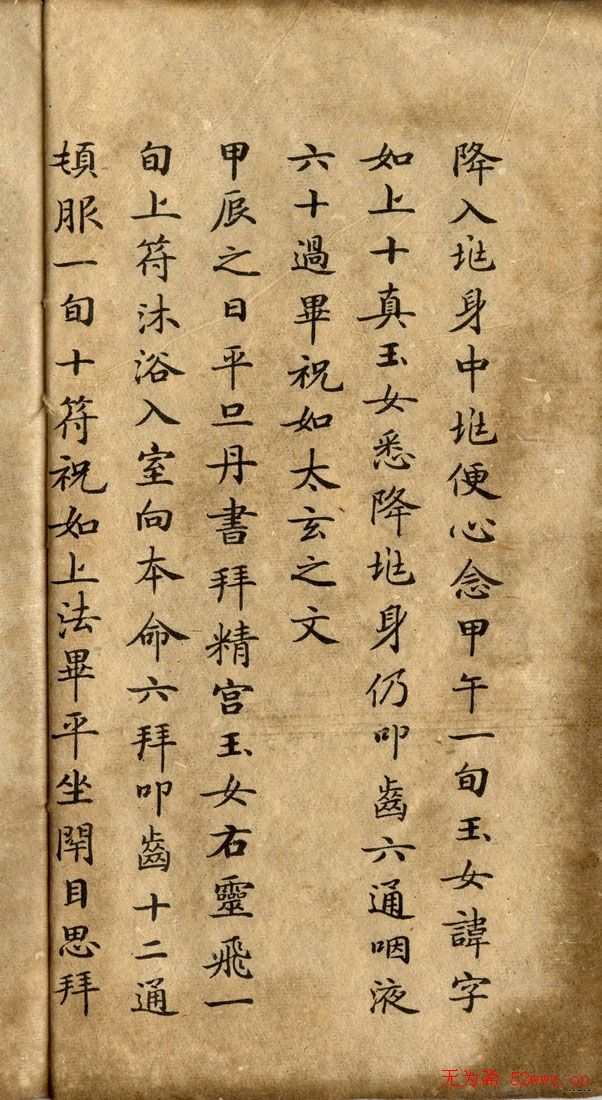 降入𡉏身中𡉏便心念甲午一旬玉女諱字
如上十真玉女悉降𡉏身仍叩齒六通咽液
六十過畢祝如太玄之文
甲辰之日平旦丹書拜精宫玉女右靈飛一
旬上符沐浴入室向本命六拜叩齒十二通
頓服一旬十符祝如上法畢平坐閇目思拜
无为斋 52wwz.cn